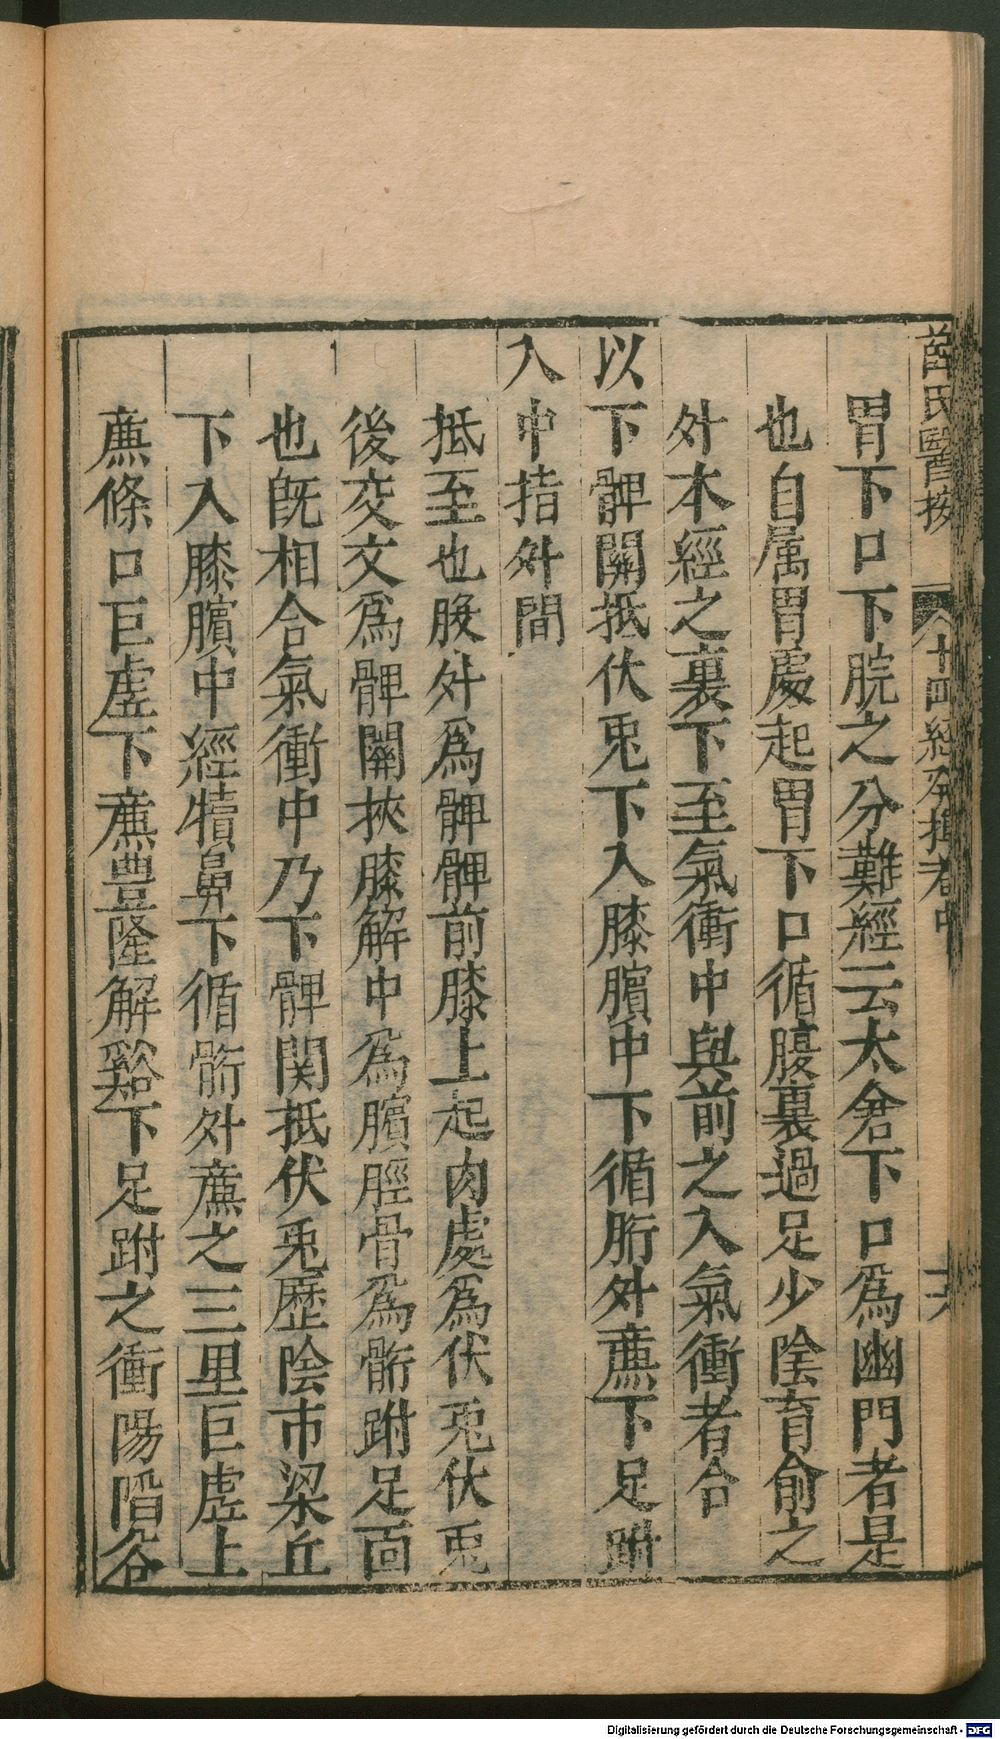 薛氏醫按 十四經發揮卷中 十六
胃下口下脘之分難經云太倉下口爲幽門者是
也自属胃處起胃下口循腹裏過足少陰肓俞之
外本經之裏下至氣衝中與前之入氣衝者合
以下髀關抵伏兎下入膝臏中下循胻外廉下足跗
入中指外間
抵至也股外爲髀髀前膝上起肉處爲伏兎伏兎
後交文爲髀關挾膝解中爲臏脛骨爲䯒跗足面
也既相合氣衝中乃下髀関抵伏兎歷陰市梁丘
下入膝臏中經犢鼻下循䯒外廉之三里巨虛上
廉條口巨虛下廉豊隆解谿下足跗之衝陽陷谷
Digitalisierung gefördert durch die Deutsche Forschungsgemeinschaft - DFG